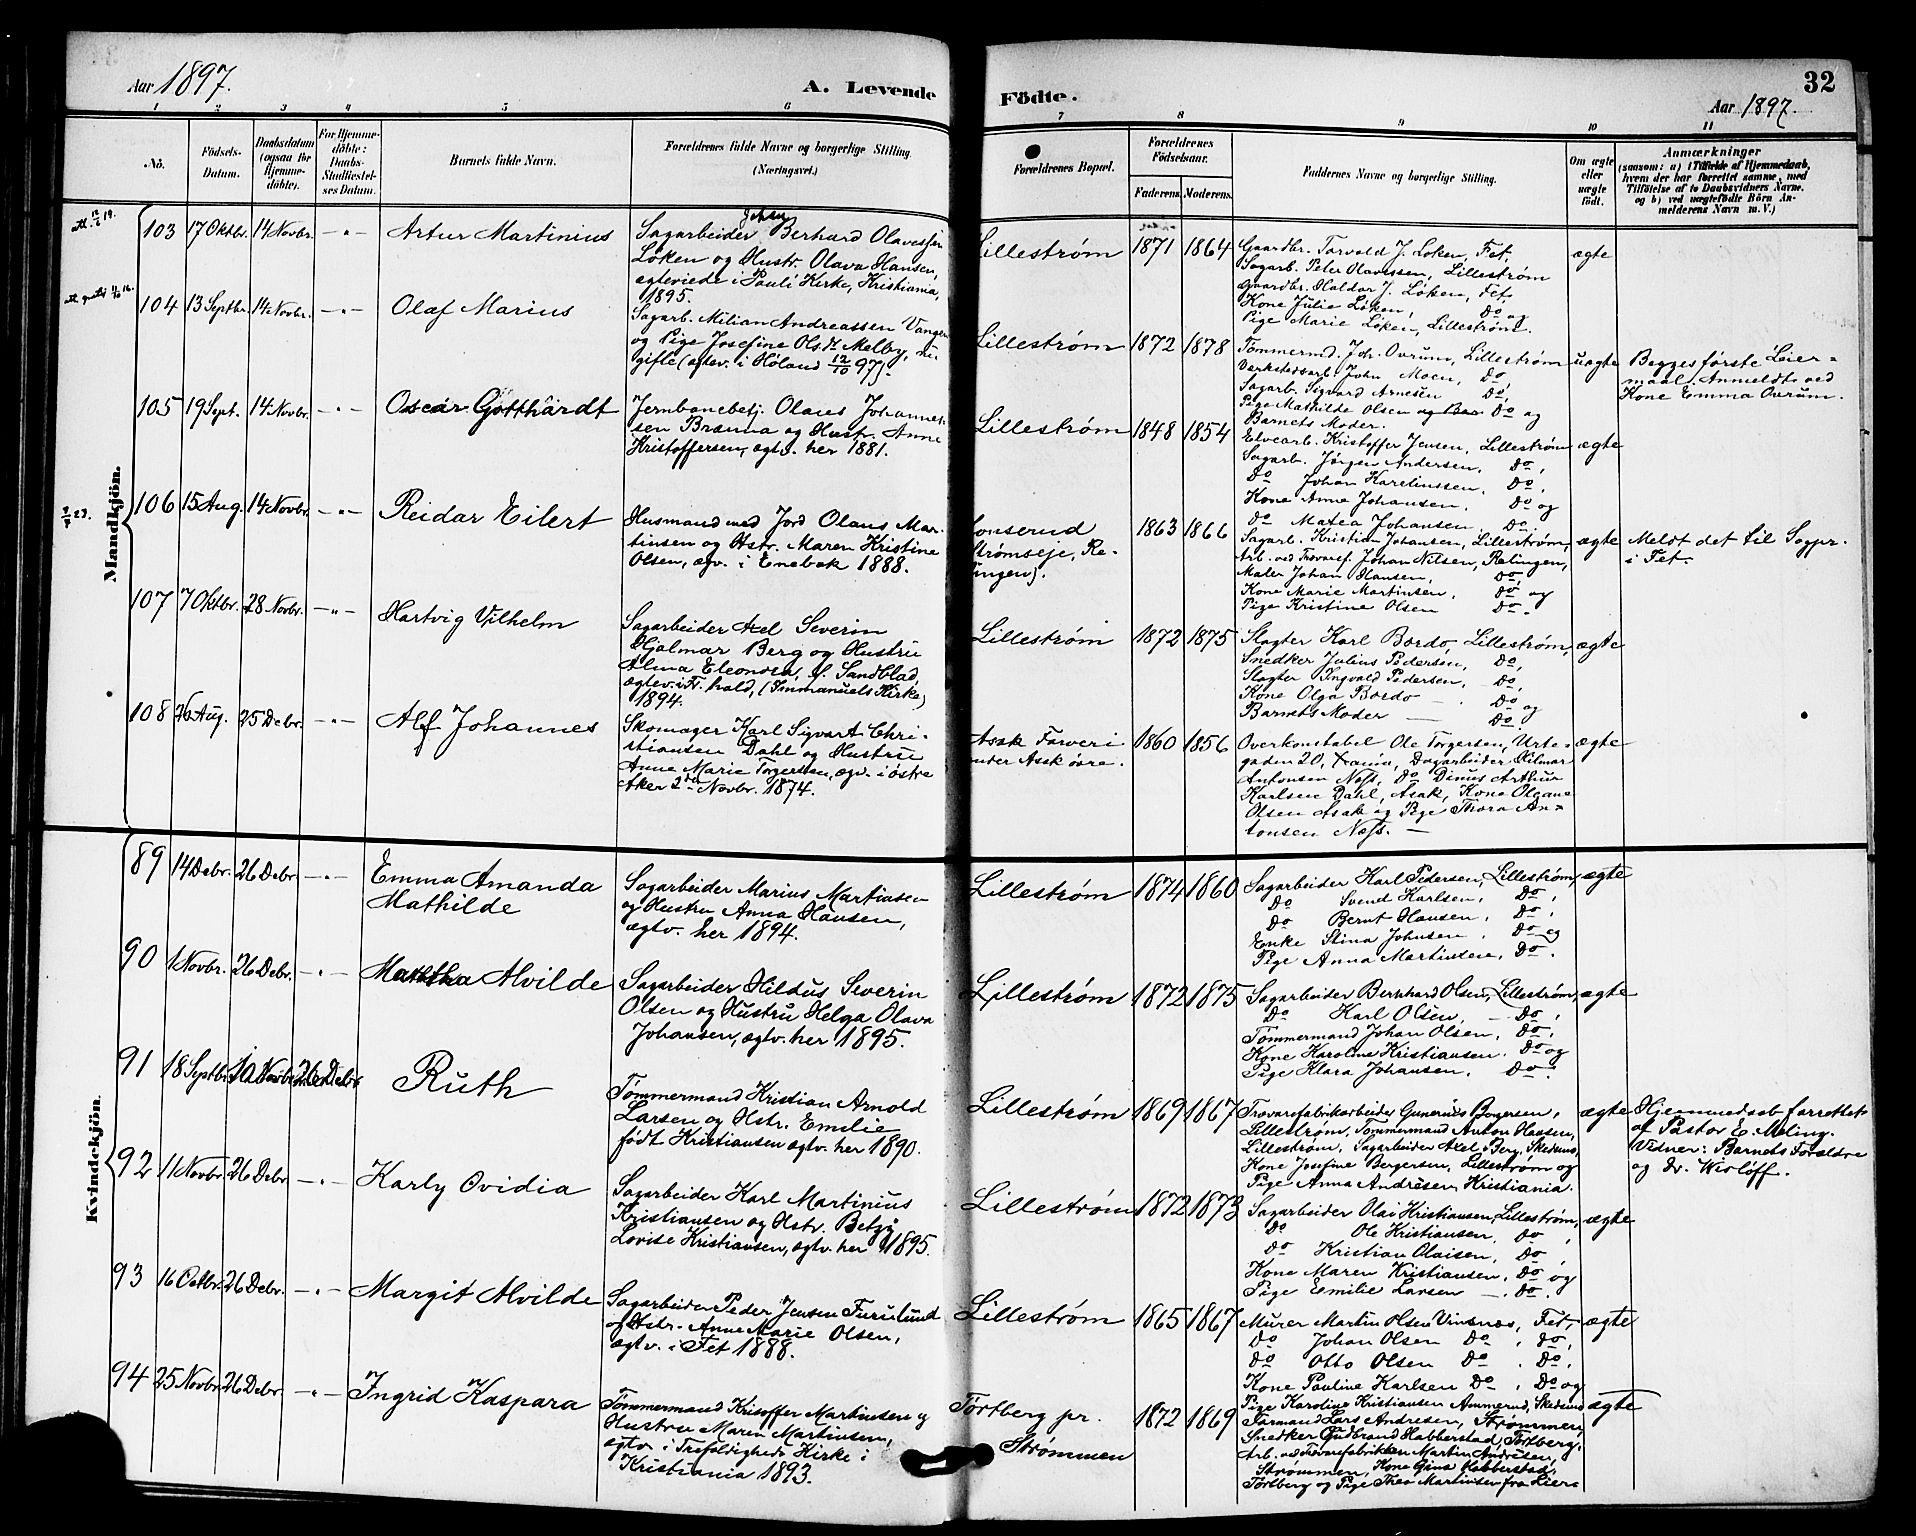 Aar 1897.
A. Levende
Födte.
32
Aar 1897.
1 2 3 4 5 6 7 8 9 10 11
No.
Födsels-
Datum.
Daabsdatum
(ogsaa för
Hjemme-
döbte).
For Hjemme-
döbte:
Daabs-
Stadfæstel-
ses Datum.
Barnets fulde Navn.
Forældrenes fulde Navne og borgerlige Stilling.
(Næringsvei.)
Forældrenes Bopæl.
Forældrenes
Födselsaar.
Faderens. Moderens.
Faddernes Navne og borgerlige Stilling.
Om ægte
eller
uægte
födt.
Anmærkninger
(saasom: a) i Tilfælde af Hjemmedaab,
hvem der har forrettet samme, med
Tilföielse af to Daabsvidners Navne.
og b) ved uægtefödte Börn An-
melderens Navn m. V.)
Mandkjön.
103 17 Oktbr. 14 Novbr. – " – Artur Martinius
Sagarbeider Berhard Olavessen
Løken og Hustr. Olava Hansen,
egteviede i Pauli Kirke, Kristiania,
1895.
Lillestrøm 1871 1864
Gaardbr. Torvald J. Løken, Fet,
Sagarb. Peter Olavessen, Lillestrøm
Gaardbr. Haldor J. Løken, Fet,
Kone Julie Løken, Do og
Pige Marie Løken, Lillestrøm.
ægte
104 13 Septbr. 14 Novbr. – " – Olaf Marius
Sagarb. Milian Andreassen Vangen
og Pige Josefine Olsdt Melby, u-
gifte (egtev. i Høland 12/10 97).
Lillestrøm 1872 1878
Tømmermd. Joh. Ovrum, Lillestrøm
Værkstedsarb. John Moen, Do,
Sagarb. Sigvard Arnesen Do,
Pige Mathilde Olsen Do og
Barnets Moder.
uægte
Begges første Leier-
maal. Anmeldt ved
Kone Emma Ovrum.
105 19 Sept. 14 Novbr. – " – Oscar Gotthardt
Jernbanebetj. Olaus Johannes-
sen Brænna og Hustr. Anne
Kristoffersen, egtv. her 1881.
Lillestrøm 1848 1854
Elvearb. Kristoffer Jensen, Lillestrøm
Sagarb. Jørgen Andersen, Do,
Do Johan Karelinssen, Do,
Kone Anne Johansen, Do og
Do Matea Johansen, Do.
ægte
106 15 Aug. 14 Novbr. – " – Reidar Eilert
Husmand med Jord Olaus Mar-
tinsen og Hstr. Maren Kristine
Olsen, egv. i Enebak 1888.
Strømseje, Re-
1863 1866
Sagarb. Kristian Johansen, Lillestrøm,
Arb. ved Trævaref. Johan Nilsen, Rælingen,
Maler Johan Hansen, Do,
Kone Marie Martinsen, Do og
Pige Kristine Olsen Do.
ægte
Meldt det til Sogpr.
i Fet.
107 7 Oktbr. 28 Novbr. – " – Hartvig Vilhelm
Sagarbeider Axel Severin
Hjalmar Berg og Hustru
Alma Eleonora, f. Sandblad,
egtev. i Fr. hald, (Immanuels Kirke)
1894.
Lillestrøm 1872 1875
Slagter Karl Bordo, Lillestrøm,
Snedker Julius Pedersen, Do,
Slagter Ingvald Pedersen, Do,
Kone Olga Bordo — Do og
Barnets Moder — Do
ægte
108 26 Aug. 25 Debr. – " – Alf Johannes
Skomager Karl Sigvart Chri-
stiansen Dahl og Hustru
Anne Marie Torgersen, egv. i østre
Aker 2den Novbr. 1874.
Asak Farveri
under Asak øvre.
1860 1856
Overkonstabel Ole Torgersen, Urte-
gaden 20, Xania, Dagarbeider Hilmar
Antonsen Næss, Do Dinus Arthur
Karlsen Dahl, Asak, Kone Olgane
Olsen Asak og Pige Thora An-
tonsen Næss. —
ægte
Kvindekjön.
89 14 Debr. 26 Debr. – " – Emma Amanda
Mathilde
Sagarbeider Marius Martinsen
og Hustru Anna Hansen,
egtv. her 1894.
Lillestrøm 1874 1860
Sagarbeider Karl Pedersen, Lillestrøm,
Do Svend Karlsen, Do,
Do Bernt Hansen, Do,
Enke Stina Johnsen, Do og
Pige Anna Martinsen, Do.
ægte
90 1 Novbr. 26 Debr. – " – Martha Alvilde
Sagarbeider Hildus Severin
Olsen og Hustru Helga Olava
Johansen, egtv. her 1895.
Lillestrøm 1872 1875
Sagarbeider Bernhard Olsen, Lillestrøm,
Do Karl Olsen, — Do,
Tømmermand Johan Olsen, Do,
Kone Karoline Kristiansen, Do og
Pige Klara Johansen, Do.
ægte
91 18 Septbr. 10 Novbr. 26 Debr. Ruth
Tømmermand Kristian Arnold
Larsen og Hstr. Emilie
født Kristiansen egtv. her 1890.
Lillestrøm 1869 1867
Trævarefabrikarbeider Gunerius Borgersen,
Lillestrøm, Tømmermand Anton Hansen,
Lillestrøm, Sagarbeider Axel Berg, Skedsmo,
Kone Josefine Bergersen, Lillestrøm og
Pige Anna Andresen, Kristiania.
ægte
Hjemmedaab forrettet
af Pastor E. Meling.
Vidner: Barnets Forældre
og Dr. Wisløff.
92 11 Novbr. 26 Debr. – " – Karly Ovidia
Sagarbeider Karl Martinius
Kristiansen og Hstr. Betzy
Lovise Kristiansen, egtv. her 1895.
Lillestrøm 1872 1873
Sagarbeider Olai Kristiansen, Lillestrøm,
Do Ole Kristiansen, Do,
Do Kristian Olaisen, Do,
Kone Maren Kristiansen, Do og
Pige Emilie Larsen — Do.
ægte
93 16 Octbr. 26 Debr. – " – Margit Alvilde
Sagarbeider Peder Jensen Furulund
og Hstr. Anne Marie Olsen,
egtv. i Fet 1888.
Lillestrøm 1865 1867
Murer Martin Olsen Vinsnes, Fet,
Do Johan Olsen Do, Do,
Do Otto Olsen Do, Do,
Kone Pauline Karlsen Do, Do og
Pige Karoline Kristiansen Ammerud, Skedsmo
ægte
94 25 Novbr. 26 Debr. – " – Ingrid Kaspara
Tømmermand Kristoffer Martinsen og
Hustru Maren Martinsen,
egtv. i Trefoldigheds Kirke i
Kristiania 1893.
Tørtberg pr.
Strømmen
1872 1869
Formand Lars Andresen, Strømmen,
Snedker Gudbrand Habberstad, Tørtberg,
Arb. ved Trævarefabrikken Martin Andresen,
Strømmen, Kone Gina Habberstad,
Tørtberg og Pige Thea Martinsen fra Lier.
ægte